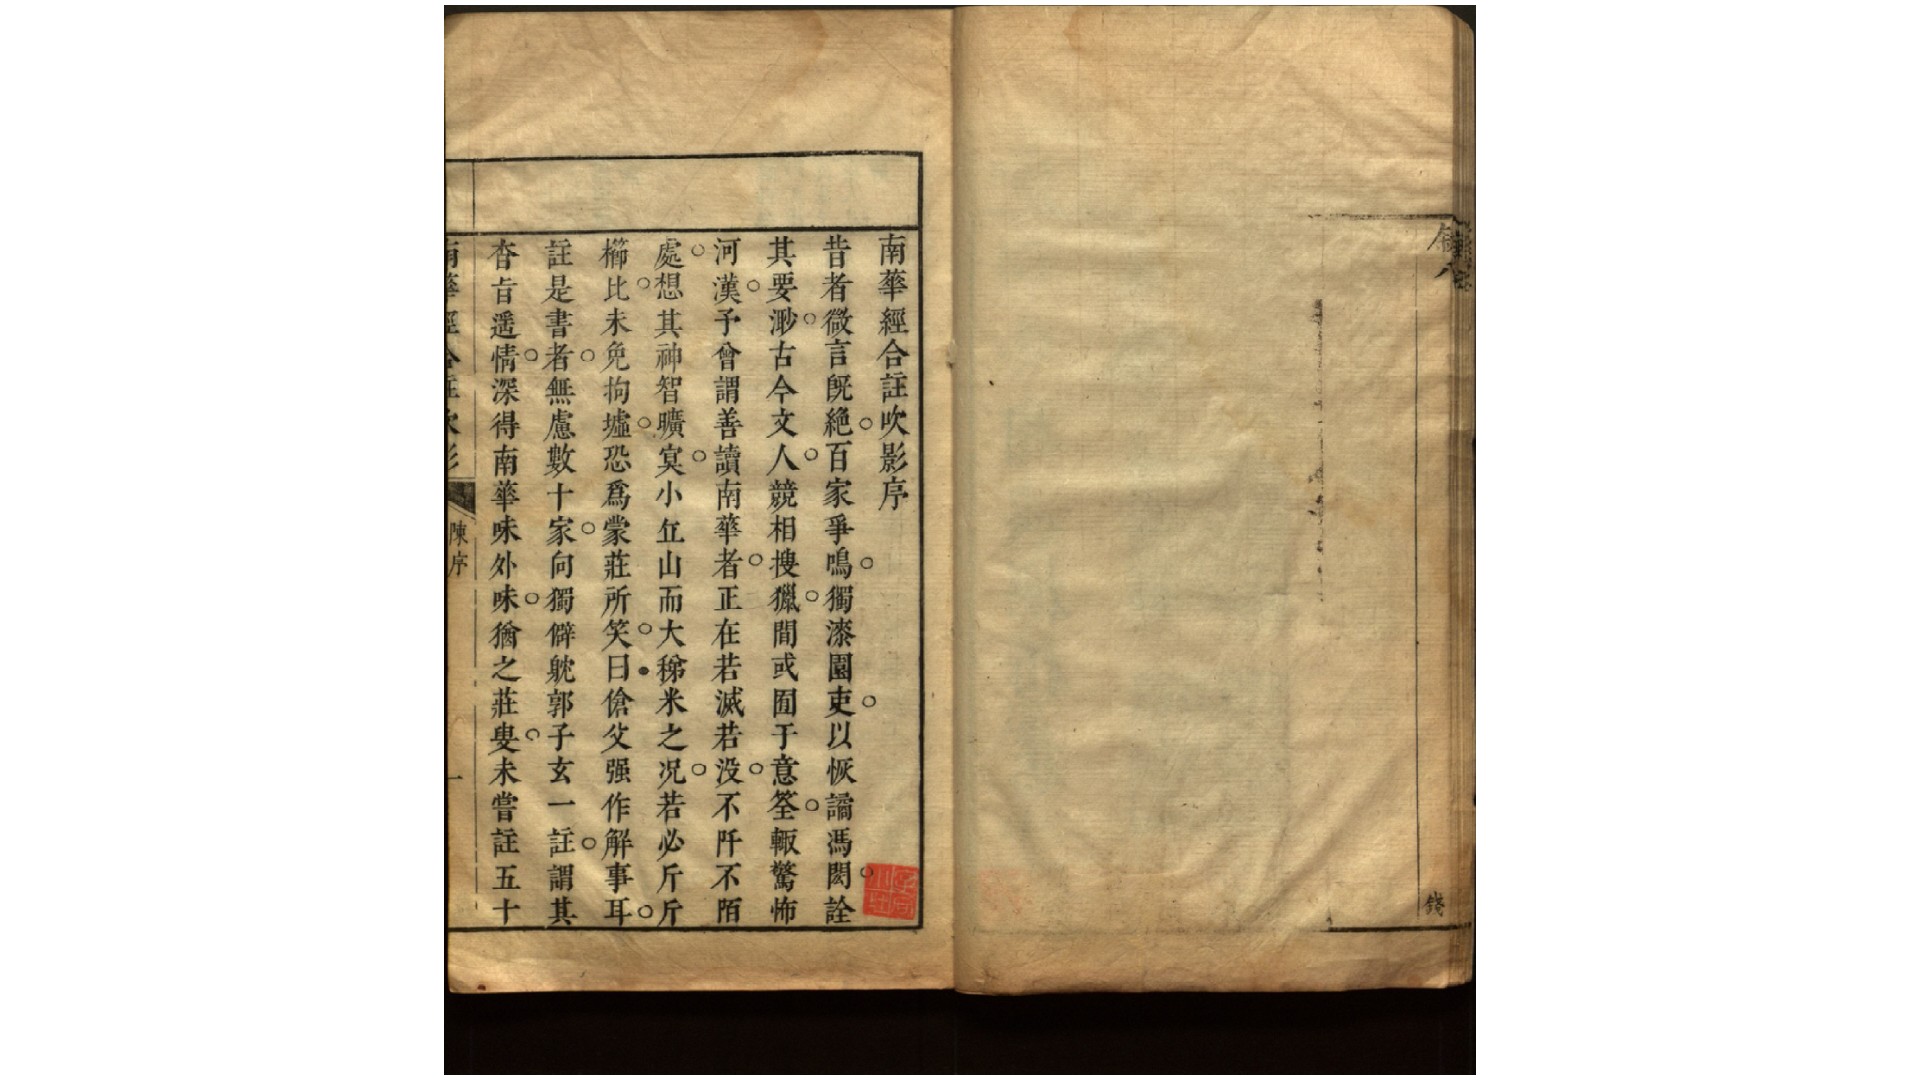 南華經合註吹影序
昔者微言旣絶百家爭鳴獨漆園吏以恢譎馮閎詮
其要渺古今文人競相搜獵間或囿于意筌輙驚怖
河漢予曾謂善讀南華者正在若滅若没不阡不陌
處想其神智曠寘小丘山而大稊米之况若必斤斤
櫛比未免拘墟恐爲蒙莊所笑曰傖父强作解事耳
註是書者無慮數十家向獨僻躭郭子玄一註謂其
杳旨遥情深得南華味外味猶之莊叟未嘗註五十
南華經合註吹影
陳序
一